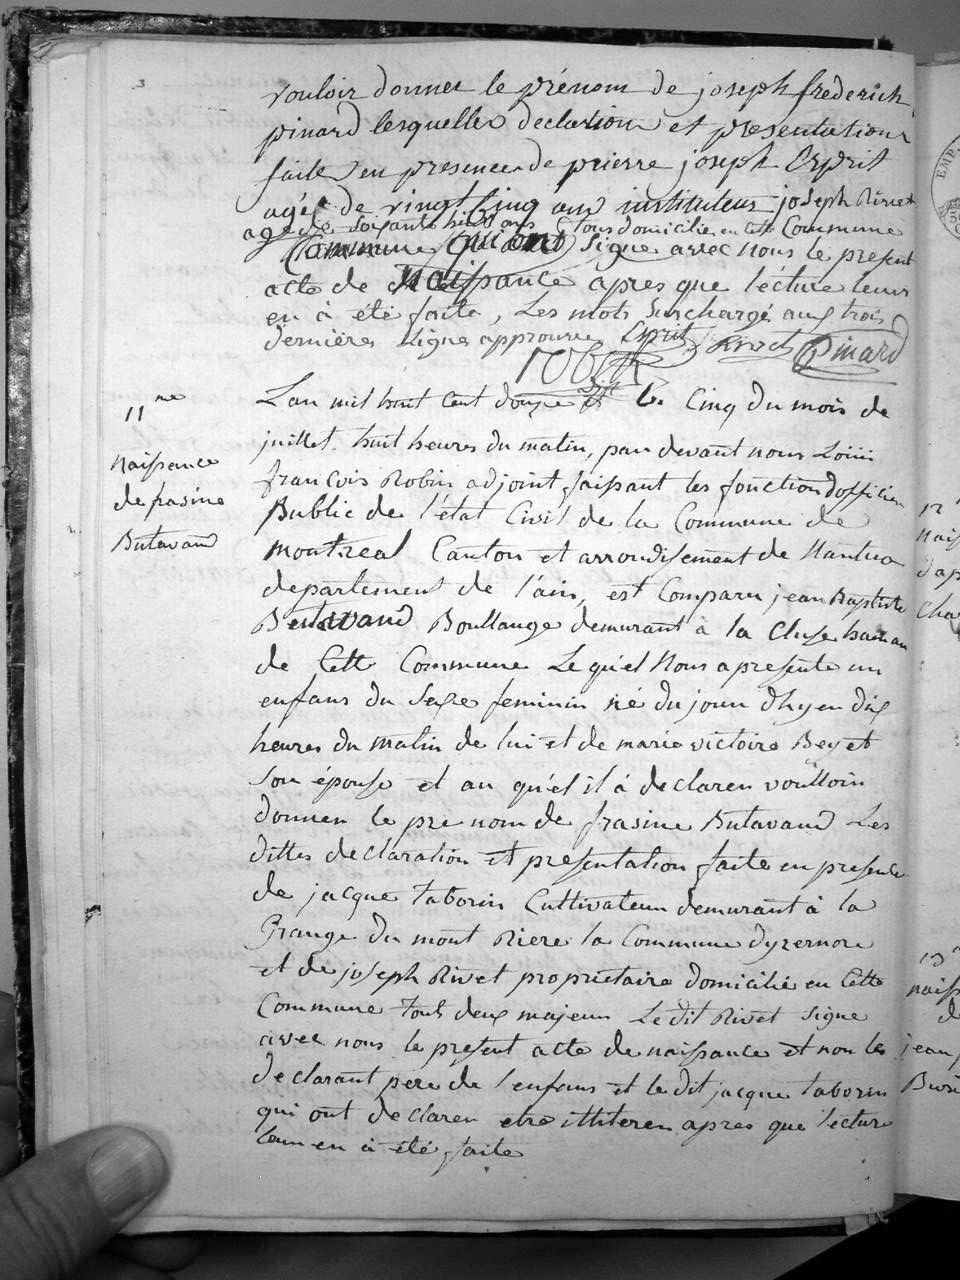 3
vouloir donner le prénom de joseph frederich
pinard lesquelles declarion et presentation
faites en presence de pierre joseph Esprit
agée de vingt cinq ans instituteur joseph Rivet
agée de soixante huit ans tous domicilie en cette Commune
Commune qui ont signe avec nous le present
acte de Naissance apres que lécture leurs
en à été faite, Les mots surchargé aux trois
dernières ligne approuve Esprit Rivet Pinard
robin
11me
Naissance
de frasine
Butavand
Lan mil huit cent douze et le Cinq du mois de
juillet huit heures du matin, par devant nous Louis
francois Robin adjoint faisant les fonction dofficier
Public de l'état Civil de la Commune de
montreal Canton et arrondisement de Nantua
departement de l'ain, est Comparu jean Baptiste
Butavand Boullange demurant à la Cluse hamau
de Cette Commune Lequ'el Nous a presente un
enfans du sexe feminin né du jour dhyer dix
heures du matin de lui et de marie victoire Beyet
son épouse et au qu'el il à declaren voulloir
donner le pre nom de frasine Butavand Les
dittes declaration et presentation faite en presence
de jacque taborin Cultivateur demurant à la
Grange du mont Riere la Commune dyzernore
et de joseph Rivet proprietaire domicilié en Cette
Commune tous deux majeur Le dit Rivet signe
avec nous le present acte de naissance et non les
declarant pere de lenfans et le dit jacque taborin
qui ont declaren etre illiteren apres que lecture
leur en à été faite
12
naiss
dap
Cha
13
naiss
de
jean